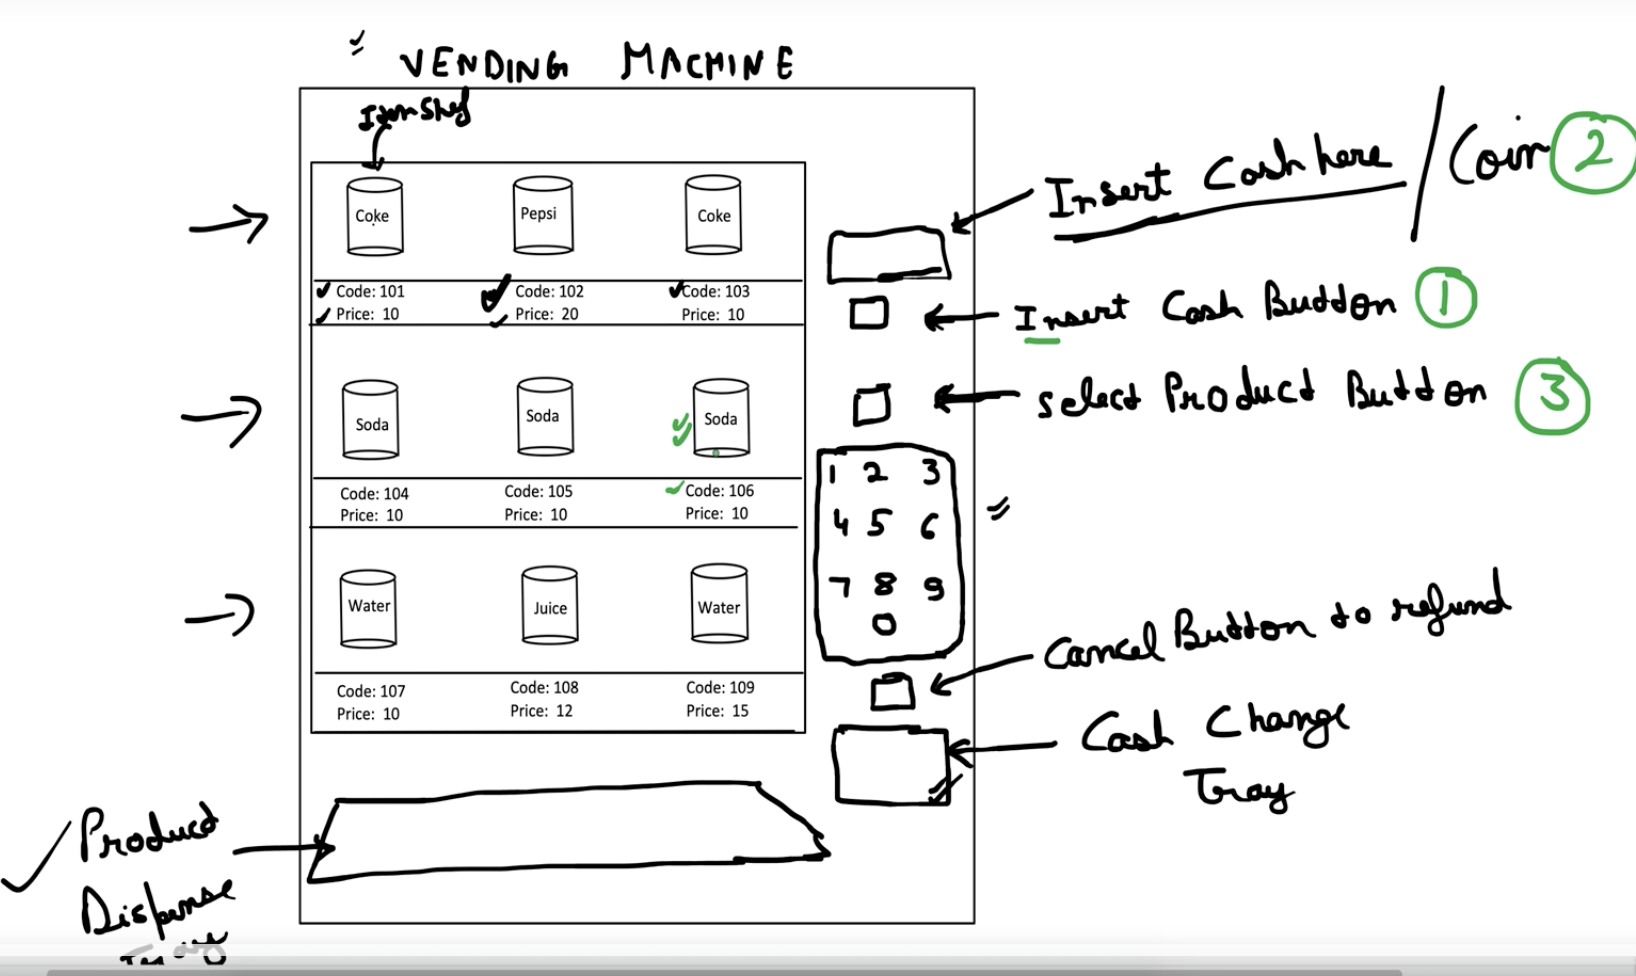 VENDING MACHINE
Item Shelf
Coke Pepsi Coke
Code: 101 Code: 102 Code: 103
Price: 10 Price: 20 Price: 10
Soda Soda Soda
Code: 104 Code: 105 Code: 106
Price: 10 Price: 10 Price: 10
Water Juice Water
Code: 107 Code: 108 Code: 109
Price: 10 Price: 12 Price: 15
Insert Cash here / Coin 2
Insert Cash Button 1
Select Product Button 3
1 2 3
4 5 6
7 8 9
0
Cancel Button to refund
Cash Change
Tray
Product
Dispense
Tray